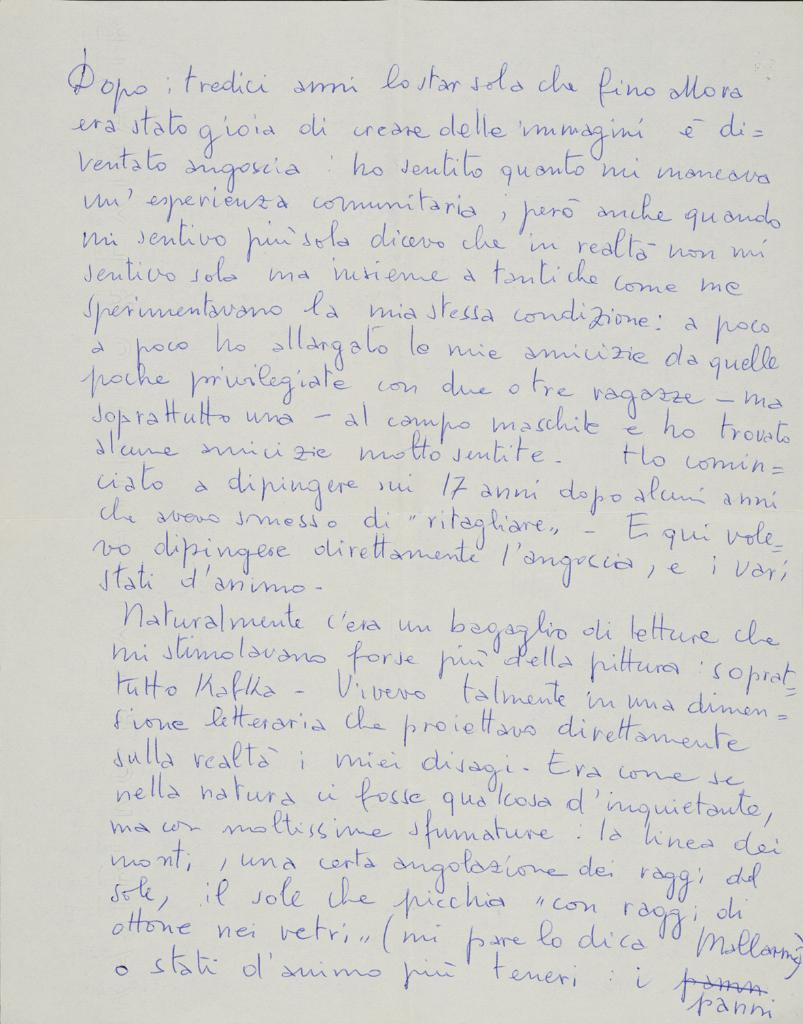 Dopo i tredici anni lo star sola che fino allora
era stato gioia di creare delle immagini è di=
ventato angoscia : ho sentito quanto mi mancava
un' esperienza comunitaria ; però anche quando
mi sentivo più sola dicevo che in realtà non mi
sentivo sola ma insieme a tanti che come me
sperimentavano la mia stessa condizione : a poco
a poco ho allargato le mie amicizie da quelle
poche privilegiate con due o tre ragazze - ma
soprattutto una - al campo maschile e ho trovato
alcune amicizie molto sentite. Ho comin=
ciato a dipingere sui 17 anni dopo alcuni anni
che avevo smesso di "ritagliare" - E qui vole=
vo dipingere direttamente l'angoscia, e i vari
stati d'animo -
Naturalmente c'era un bagaglio di letture che
mi stimolavano forse più della pittura : soprat=
tutto Kafka - Vivevo talmente in una dimen=
sione letteraria che proiettavo direttamente
sulla realtà i miei disagi. Era come se
nella natura ci fosse qualcosa d'inquietante,
ma con moltissime sfumature : la linea dei
monti, una certa angolazione dei raggi del
sole, il sole che picchia "con raggi di
ottone nei vetri" (mi pare lo dica Mallarmé)
o stati d'animo più teneri : i pann
panni